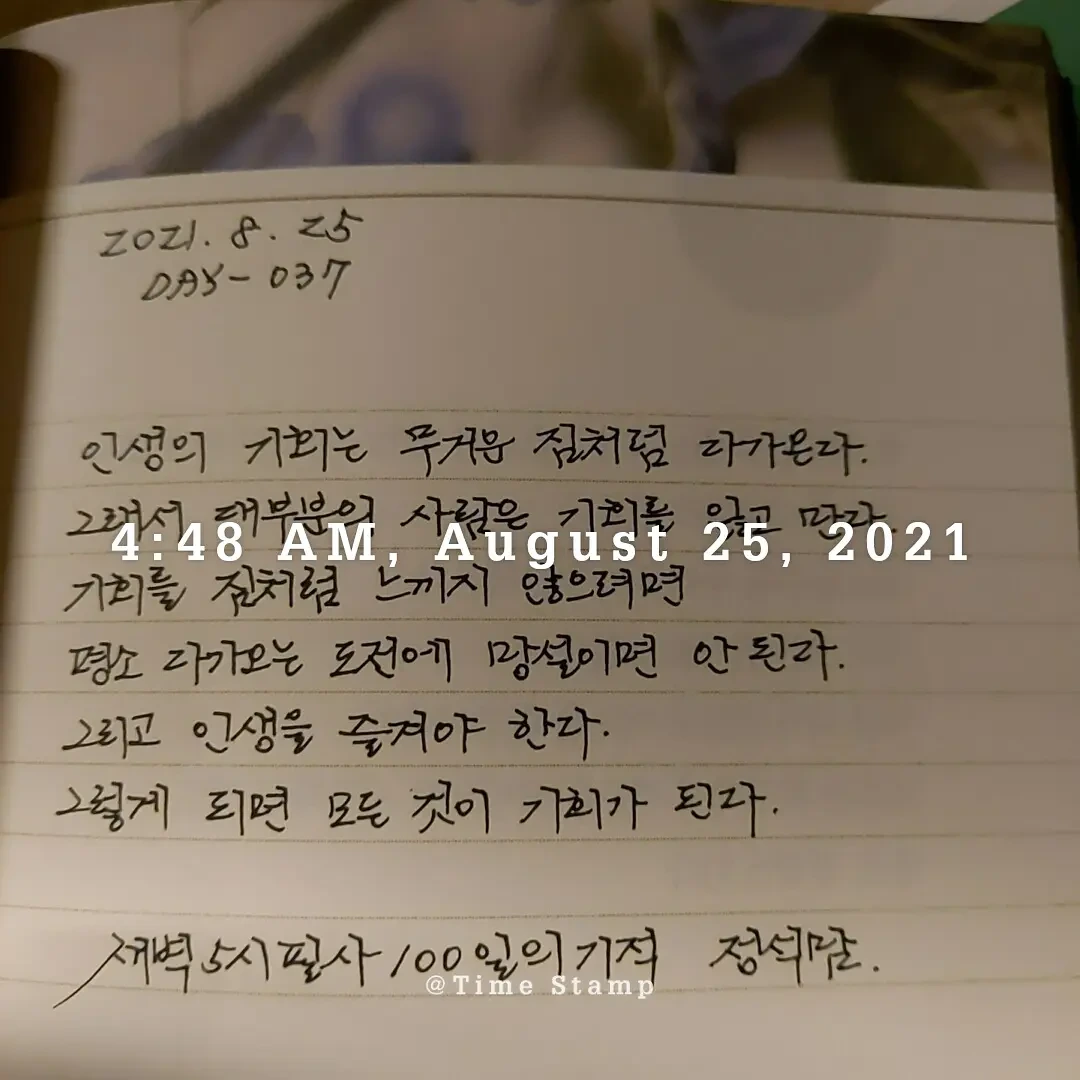 2021. 8. 25
DAY- 037
인생의 기회는 무거운 짐처럼 다가온다.
그래서 대부분의 사람은 기회를 잃고 만다
4:48 AM, August 25, 2021
기회를 짐처럼 느끼지 않으려면
평소 다가오는 도전에 망설이면 안 된다.
그리고 인생을 즐겨야 한다.
그렇게 되면 모든 것이 기회가 된다.
새벽 5시 필사 100일의 기적
@Time Stamp